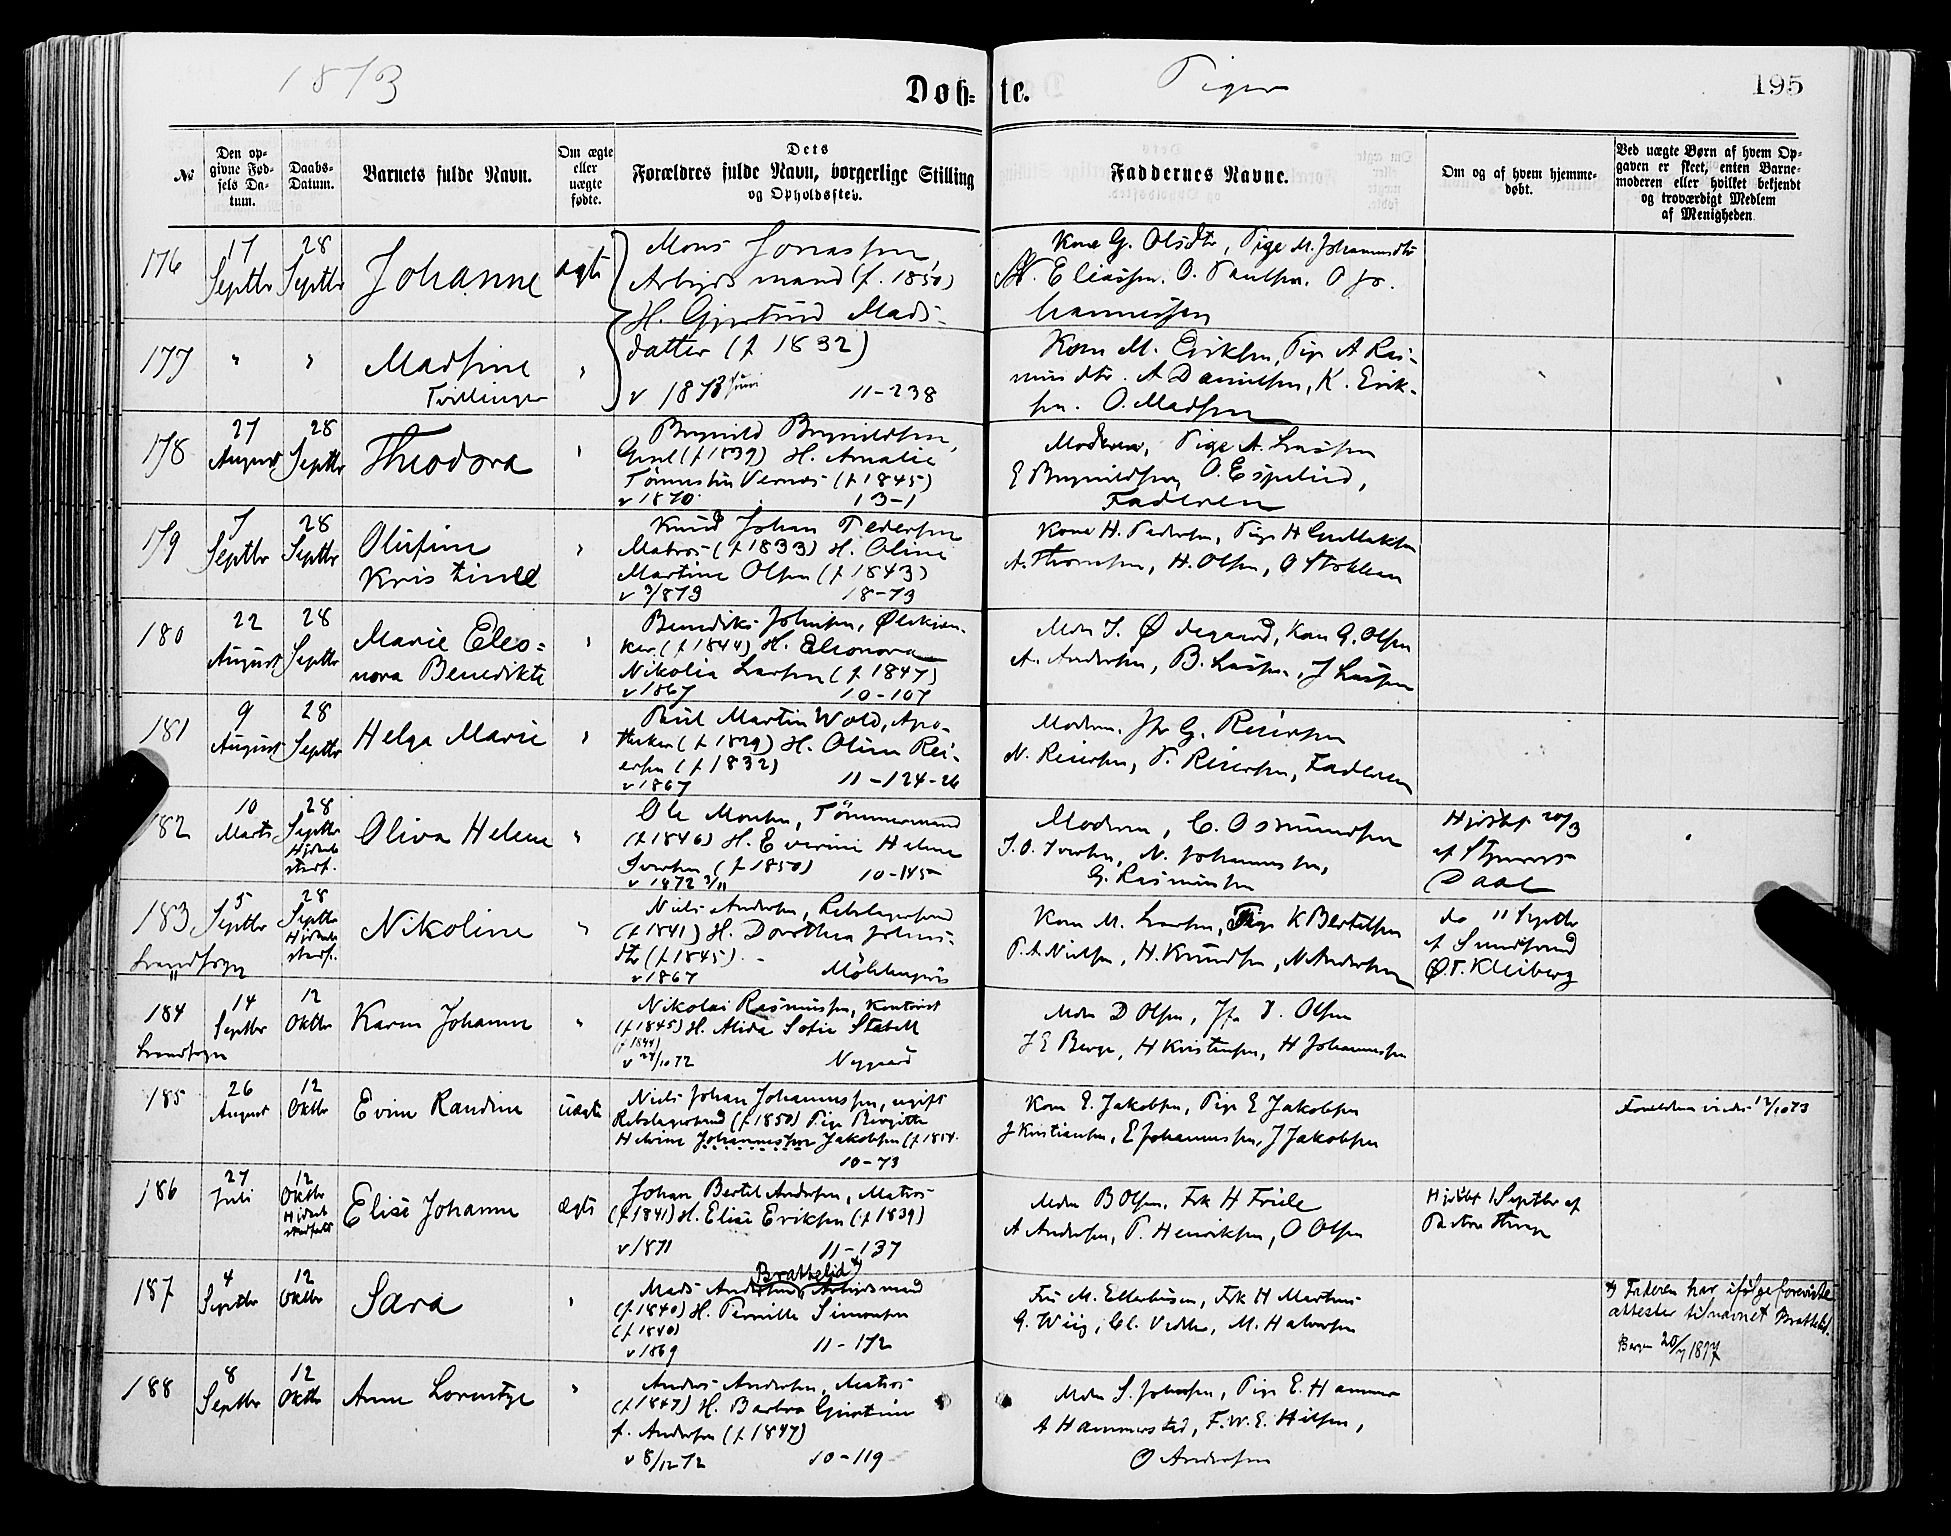 1873 Døb=te. Piger 195
No
Den opgivne Fødsels Datum.
Daabs-Datum.
Barnets fulde Navn.
Om ægte eller uægte fødte.
Dets Forældres fulde Navn, borgerlige Stilling og Opholdssted.
Faddernes Navne.
Om og af hvem hjemmedøbt.
Ved uægte Børn af hvem Opgaven er skeet, enten Barnemoderen eller hvilket bekjendt og troværdigt Medlem af Menigheden
176 17 Septbr 28 Septbr Johanne ægte
Mons Jonassen,
Arbejdsmand (f. 1850)
H. Gjertrud Mads-
datter (f 1832)
v 1873 11-238
Kone G. Olsdtr, Pige M. Johannesdtr
Eliassen. O. Paulsen. O Jo-
hannessen
177 " " Madsine "
Tvillinger
Kone M. Eriksen, Pige A Ras-
musdtr. A Danielsen, K. Erik-
sen. O. Madsen
178 27 August 28 Septbr Theodora "
Brynild Brynildsen,
(f 1839) H. Amalie
(f 1845)
v 1870 13-1
Moderen, Pige A. Larsen
E Brynildsen O. Espelid,
Faderen
179 7 Septbr 28 Septbr Olufine Kristine "
Knud Johan Pedersen
Matros (f 1833) H. Oline
Martine Olsen (f 1843)
v 3/873 18-73
Kone H. Pedersen, Pige H Gullaksen
A. Thomsen, H. Olsen,
180 22 August 28 Septbr Marie Eleo=
nora Benedikte "
Benedikt Johnsen, Ølskjæn-
ker (f 1844) H. Eleonora
Nikolia Larsen (f 1847)
v 1867 10-107
Mdm J. Ødegaard, Kone G. Olsen
A. Andersen, B. Larsen, J Larsen
181 9 August 28 Septbr Helga Marie "
Poul Martin Wold, Apo-
theker (f 1829) H. Oline Rei-
ersen (f 1832)
v 1867 11-124-26
Moderen. Jfr G. Reiersen
N. Reiersen, P. Reiersen, Faderen
182 10 Marts 28 Septbr Hjdaab stadf. Oliva Helene "
Ole Monsen, Tømmermand
(f 1846) H. Everine Helene
Iversen (f 1850) 10-145
v 1872
Moderen, C. Osmundsen
J. O. Iversen, N. Johannessen,
G. Rasmussen
Hjdøbt 20/3
af
Daae
183 5 Septbr 28 Septbr Hjdaab stadf. Nikoline "
Landsogn
Niels Andersen, Rebslagersvend
(f 1841) H. Dorothea Johns-
dtr (f 1845).
v 1867 Möhlenpris
Kone M. Larsen, Pige K Bertelsen
P. A. Nielsen, H. Knudsen, N. Andersen
do 11 Septbr
af
Ø. T. Kleiberg
184 14 Septbr 12 Oktbr Karen Johanne "
Landsogn
Nikolai Rasmussen, Kontorist
(f 1845) H. Alida Sofie Stabell
(f 1844)
v 24/10 72 Nygaard
Mdm D Olsen, Jfr D. Olsen
J E Berge, H Kristensen, H Johannessen
185 26 August 12 Oktbr Evine Randine uægte
Niels Johan Johannessen, ugift
Rebslagersvend (f 1850) Pige Birgitte
Helvine Johannessen Jakobsen (f 1854.
10-73
Kone E. Jakobsen, Pige E Jakobsen
J Kristiansen, E Johannessen, J Jakobsen
Forældrene viede 12/10 73
186 27 Juli 12 Oktbr Hjdaab stadfæstet Elise Johanne ægte
Johan Bertel Andersen, Matros
(f 1841) H. Elise Eriksen (f 1839)
v 1871 11-137
Mdm B Olsen, Frk H Friele
A Andersen, P. Henriksen, O Olsen
Hjdøbt 1 Septbr af
Pastor
187 4 Septbr 12 Oktbr Sara "
Brattelid x)
Mads Andersen, Arbejdsmand
(f 1840) H. Pernille Simonsen
(f 1840)
v 1869 11-172
Fru M. Ellerhusen, Frk H Martens
G. Wiig, Cl. Vedeler, M. Halvorsen
x) Faderen har ifølge foreviste
attester tilnavnet Brattelid.
Bergen 20/7 1897
188 8 Septbr 12 Oktbr Anne Lorentze "
Anders Andersen, Matros
(f 1847) H. Barbra Gjertine
f. Andersen (f 1847)
v 8/12 72 10-119
Mdm S. Johnsen, Pige E. Hammer
A Hammerstad, F. W. E. Hilsen,
O Andersen